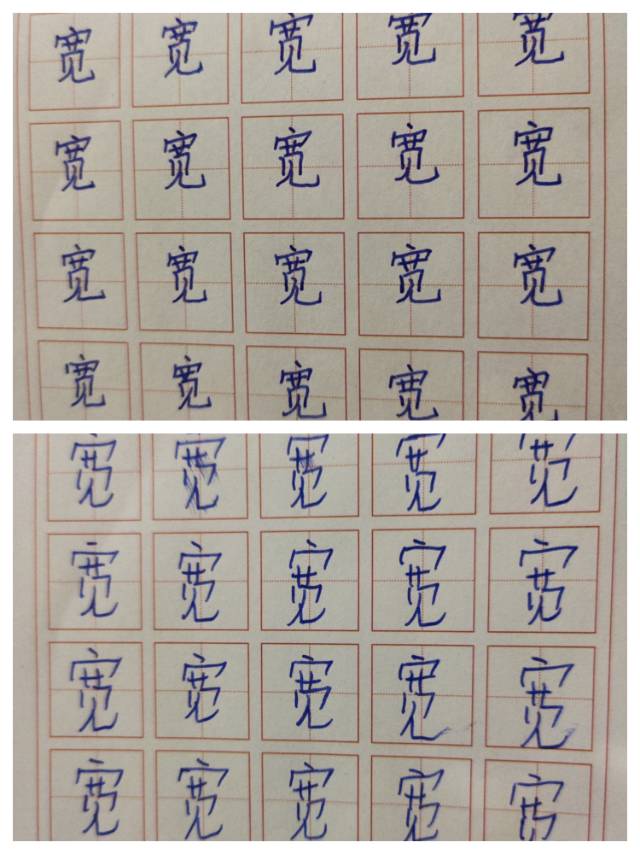 宽 宽 宽 宽 宽
宽 宽 宽 宽 宽
宽 宽 宽 宽 宽
宽 宽 宽 宽 宽
宽 宽 宽 宽 宽
宽 宽 宽 宽 宽
宽 宽 宽 宽 宽
宽 宽 宽 宽 宽